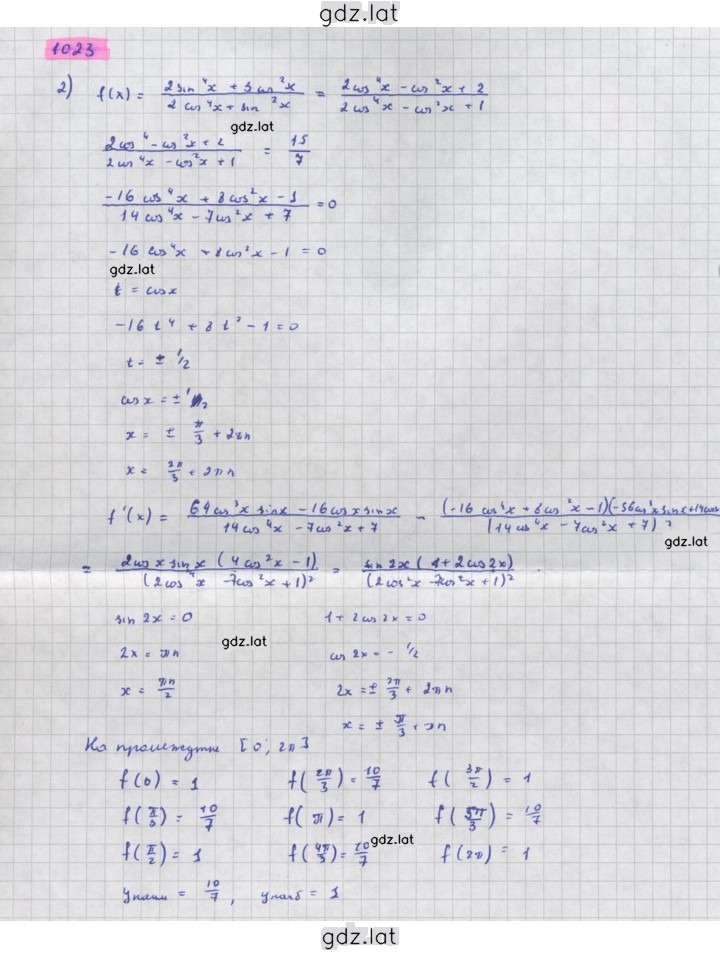 gdz.lat
1023
2) f(x) = (2 sin⁴x + 3 cos²x)/(2 cos⁴x + sin²x) = (2cos⁴x - cos²x + 2)/(2cos⁴x - cos²x + 1)
gdz.lat
(2cos⁴ - cos²x + 2)/(2cos⁴x - cos²x + 1) = 15/7
(-16 cos⁴x + 8cos²x - 1)/(14cos⁴x - 7cos²x + 7) = 0
-16 cos⁴x + 8cos²x - 1 = 0
gdz.lat
t = cosx
-16 t⁴ + 8 t² - 1 = 0
t = ± 1/2
cos x = ± 1/2
x = ± π/3 + 2πn
x = 2π/3 + 2πn
f'(x) = (64cos³x sinx - 16cosx sinx)/(14cos⁴x - 7cos²x + 7) - ((-16 cos⁴x + 8cos²x - 1)(-56cos³x sinx + 14cos)/(14cos⁴x - 7cos²x + 7)²
gdz.lat
= (2cosx sinx (4cos²x - 1))/(2cos⁴x - 7cos²x + 1)² = (sin2x (1 + 2cos2x))/(2cos²x - 7cos²x + 1)²
sin 2x = 0 1 + 2cos 2x = 0
gdz.lat
2x = πn cos 2x = - 1/2
x = πn/2 2x = ± 2π/3 + 2πn
x = ± π/3 + πn
На промежутке [0; 2π]
f(0) = 1 f(2π/3) = 10/7 f(3π/2) = 1
f(π/3) = 10/7 f(π) = 1 f(5π/3) = 10/7
gdz.lat
f(π/2) = 1 f(4π/3) = 10/7 f(2π) = 1
yнаим = 10/7, yнаиб = 1
gdz.lat